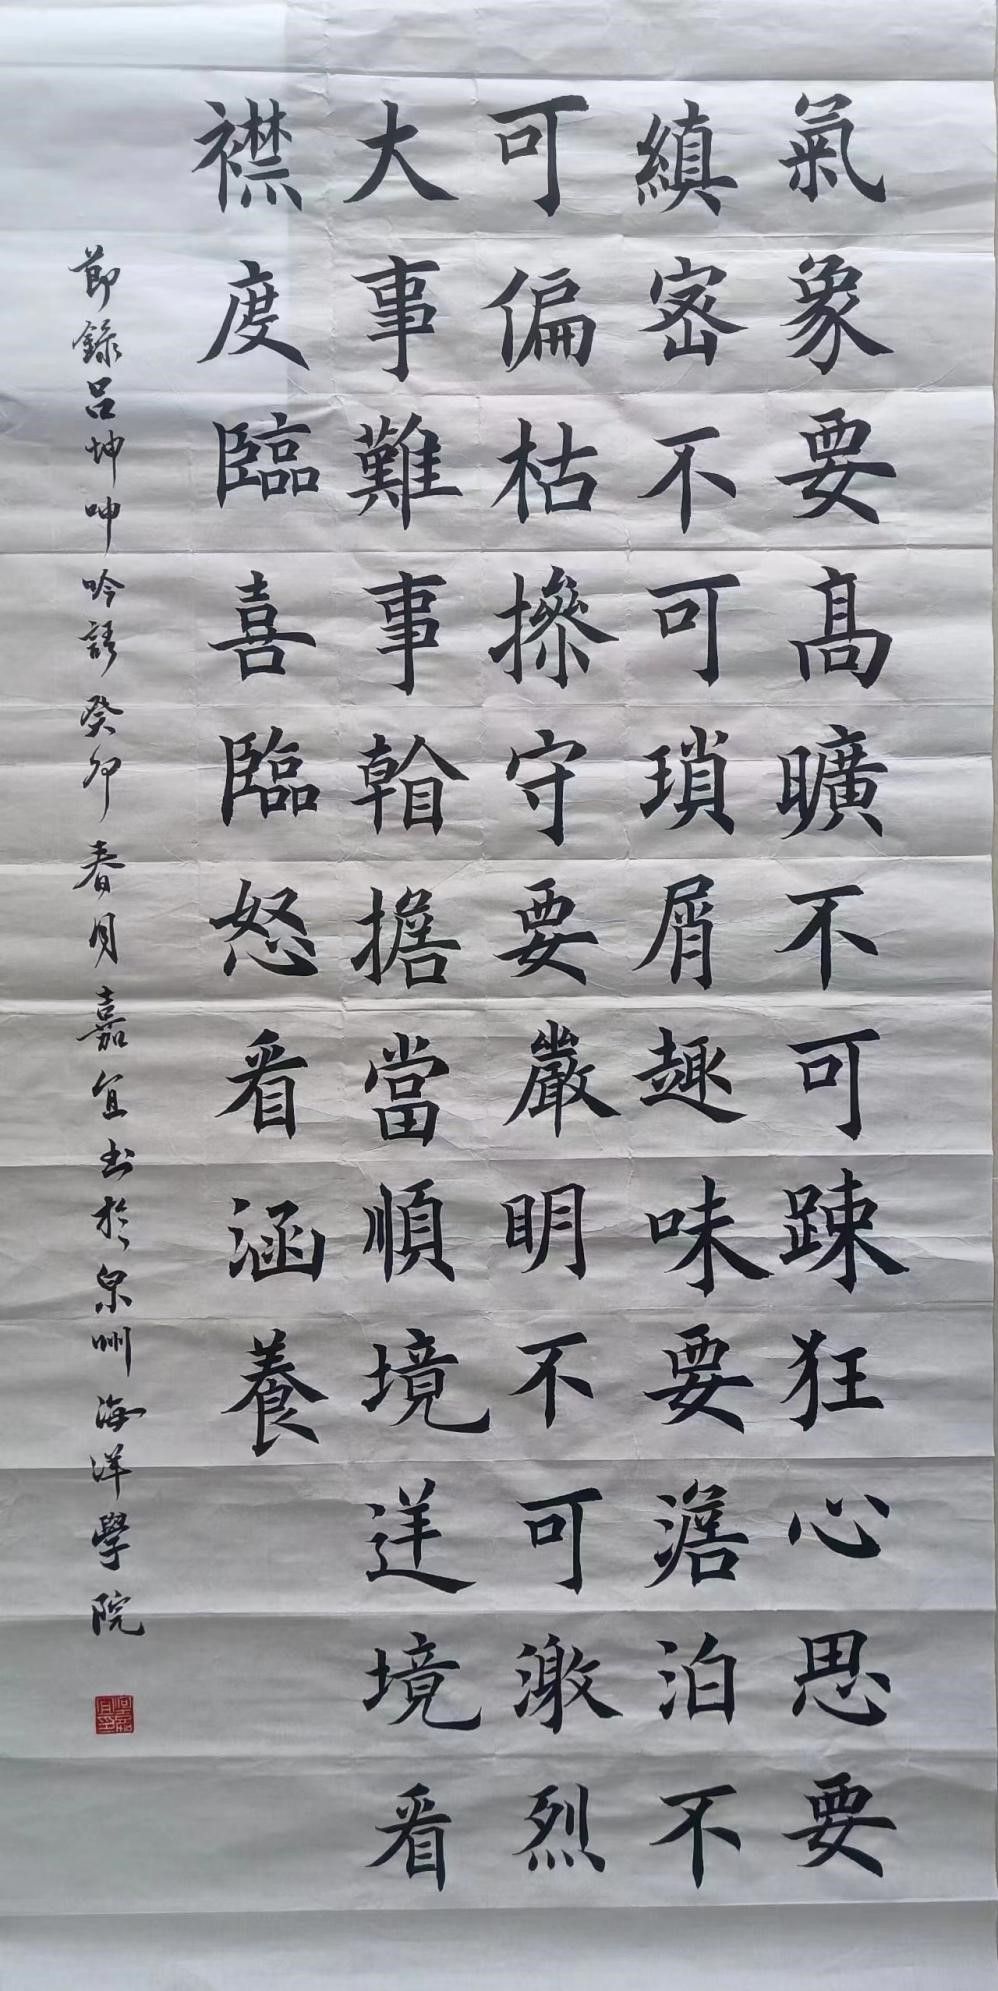 氣象要高曠不可踈狂心思要
縝密不可瑣屑趣味要澹泊不
可偏枯操守要嚴明不可激烈
大事難事看擔當順境逆境看
襟度臨喜臨怒看涵養
節錄呂坤呻吟語癸卯春月嘉宜书於泉州海洋學院